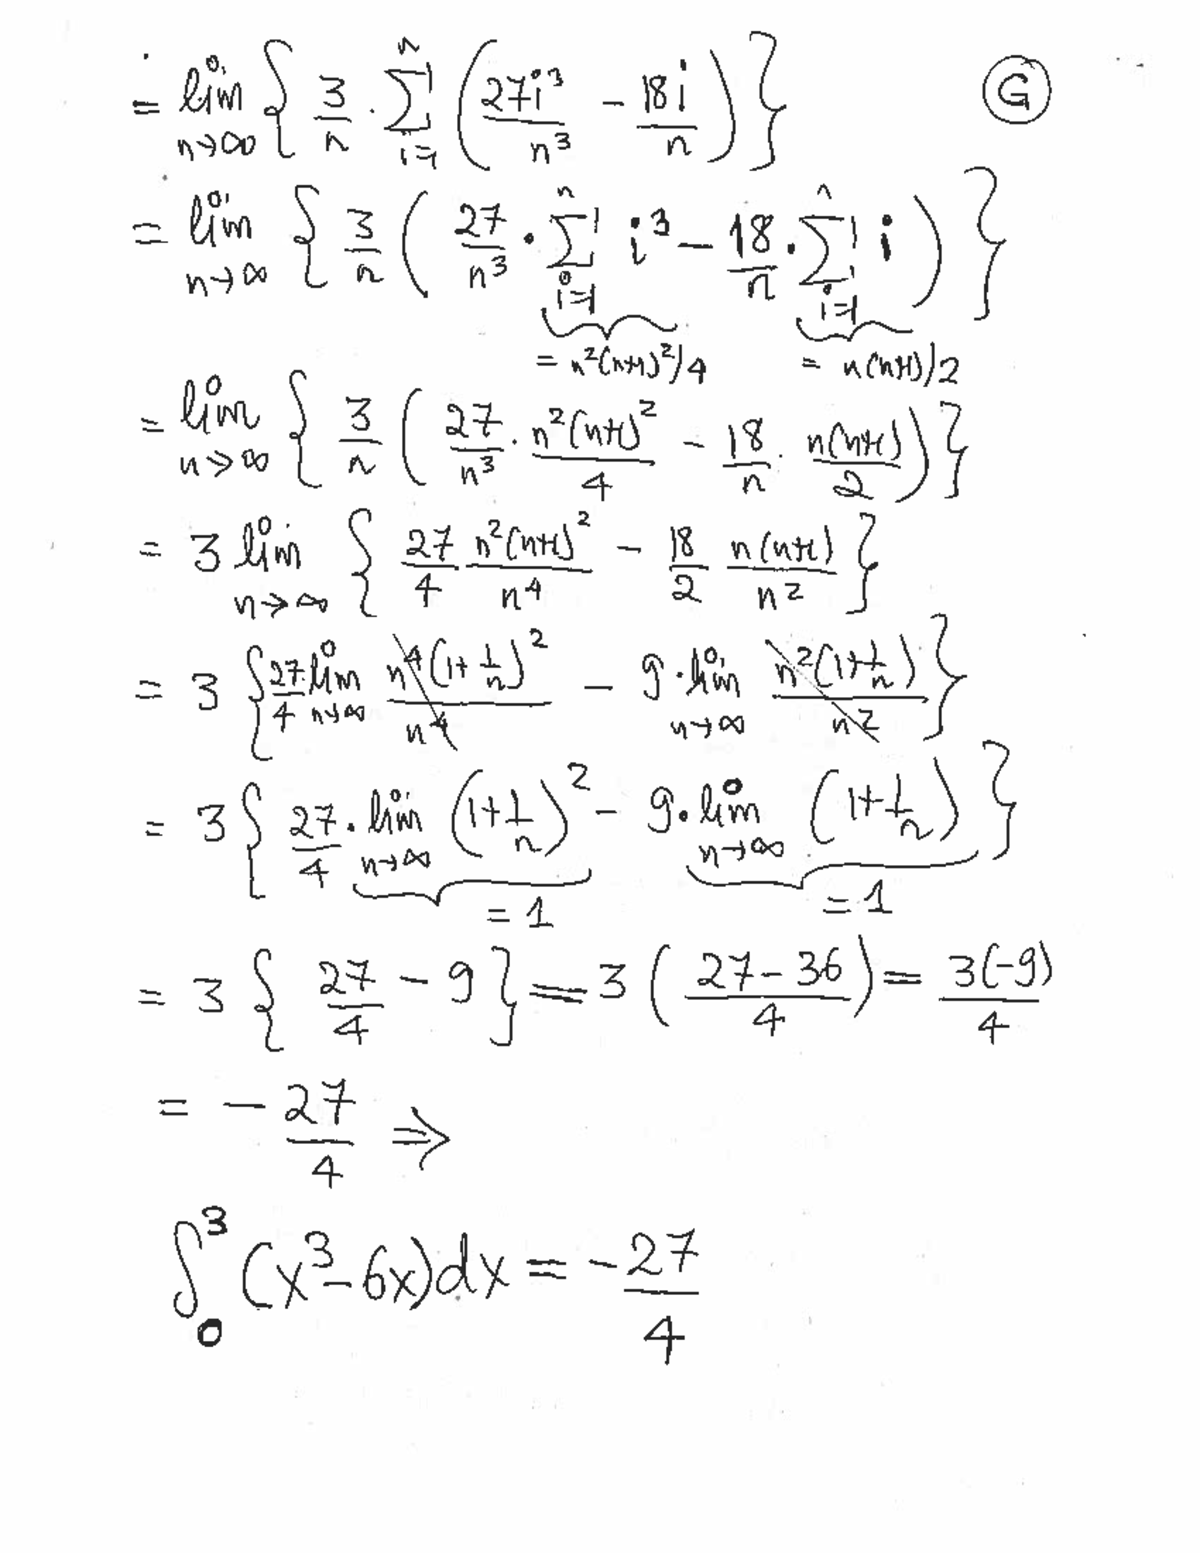 = lim n→∞ { 3/n · Σ i=1 n ( 27i³/n³ − 18i/n ) } G
= lim n→∞ { 3/n ( 27/n³ · Σ i=1 n i³ − 18/n · Σ i=1 n i ) }
= n²(n+1)²/4 = n(n+1)/2
= lim n→∞ { 3/n ( 27/n³ · n²(n+1)²/4 − 18/n · n(n+1)/2 ) }
= 3 lim n→∞ { 27/4 n²(n+1)²/n⁴ − 18/2 n(n+1)/n² }
= 3 { 27/4 lim n→∞ n⁴(1+1/n)²/n⁴ − 9·lim n→∞ n²(1+1/n)/n² }
= 3 { 27/4 · lim n→∞ (1+1/n)² − 9·lim n→∞ (1+1/n) }
= 1 = 1
= 3 { 27/4 − 9 } = 3 ( 27−36/4 ) = 3(−9)/4
= − 27/4 ⇒
∫₀³ (x³−6x)dx = −27/4